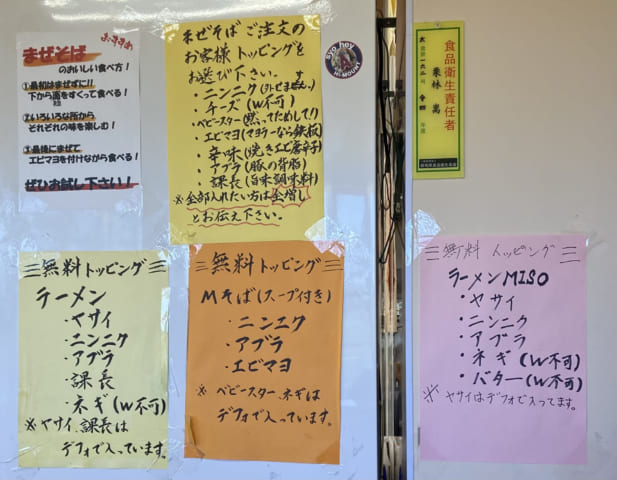 おすすめ
まぜそば
のおいしい食べ方!
①最初はまぜずに!!
下から麺をすくって食べる!
②いろいろな所から
それぞれの味を楽しむ!
③最後にまぜて
エビマヨを付けながら食べる!
ぜひお試し下さい!
まぜそばご注文の
お客様トッピングを
お選び下さい。
・ニンニク
・チーズ(W不可)
・ベビースター(黙ってためして!)
・エビマヨ(マヨラーなら鉄板)
・辛味(焼きエビ唐辛子)
・アブラ(豚の背脂)
・課長(旨味調味料)
※全部入れたい方は全増し
とお伝え下さい。
syo hey
HI-MOUNT
食品衛生責任者
栗林 嵩
無料トッピング
ラーメン
・ヤサイ
・ニンニク
・アブラ
・課長
・ネギ(W不可)
※ヤサイ、課長は
デフォで入っています。
無料トッピング
Mそば(スープ付き)
・ニンニク
・アブラ
・エビマヨ
※ベビースター、ネギは
デフォで入っています。
無料トッピング
ラーメンMISO
・ヤサイ
・ニンニク
・アブラ
・ネギ(W不可)
・バター(W不可)
※ヤサイはデフォで入ってます。